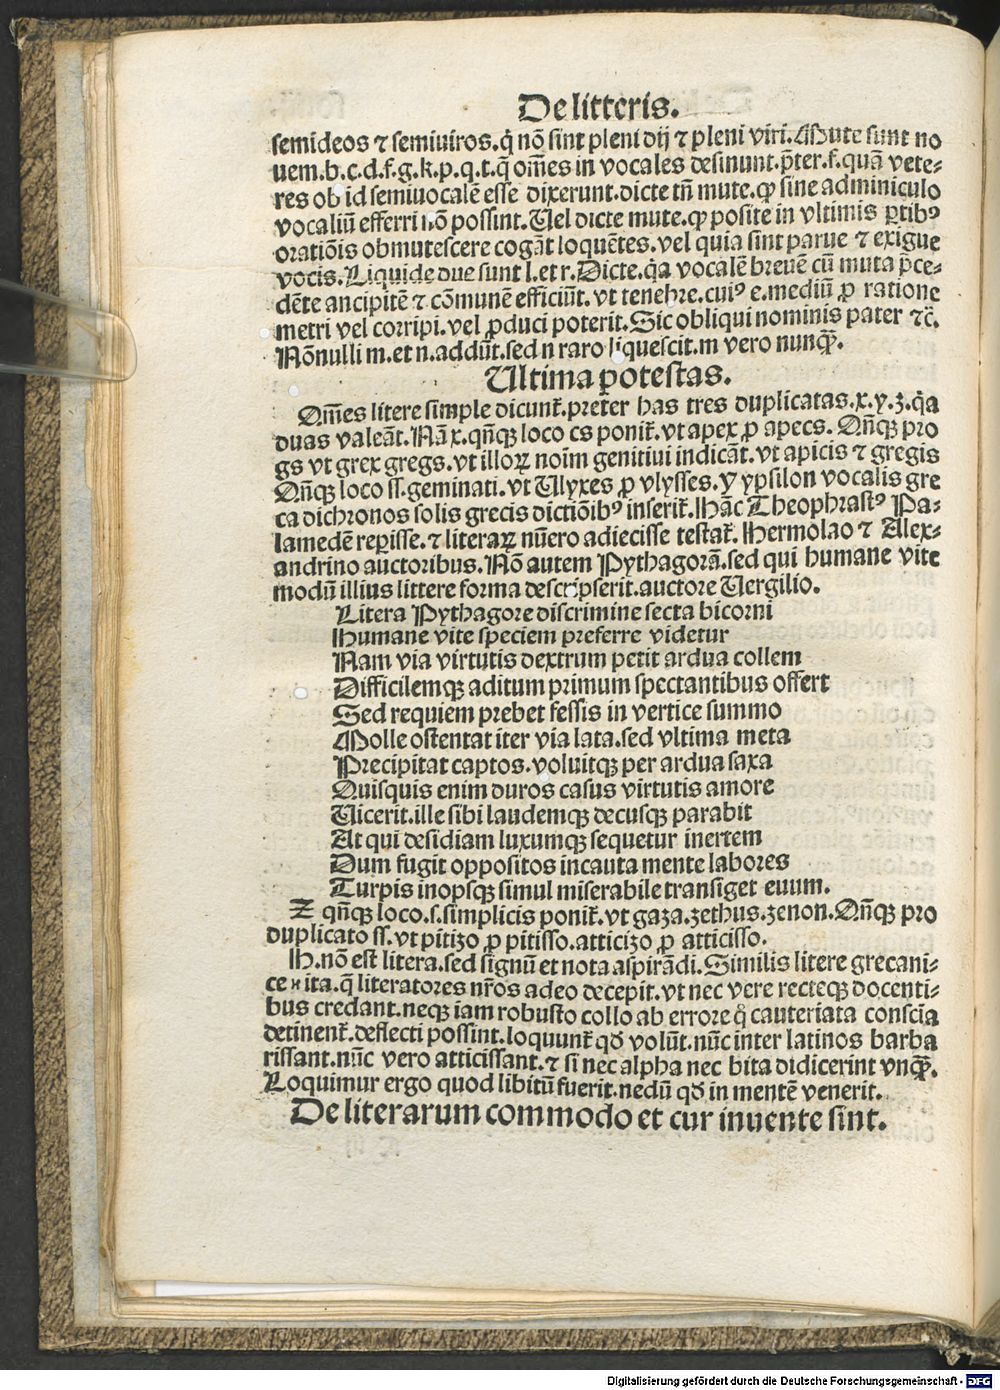 De litteris.
semideos ⁊ semiuiros. q̇ nō sint pleni dij ⁊ pleni viri. Mute sunt no
uem. b. c. d. f. g. k. p. q. t. q̄ om̄es in vocales desinunt. p̄ter. f. quā vete⸗
res ob id semiuocalē esse dixerunt. dicte tn̄ mute. ꝙ sine adminiculo
vocaliū efferri nō possint. Uel dicte mute. ꝙ posite in vltimis ꝑtibꝰ
oratiōis obmutescere cogāt loquētes. vel quia sint parue ⁊ exigue
vocis. Liquide due sunt l. et r. Dicte. q̇a vocalē breuē cū muta p̄ce⸗
dēte ancipitē ⁊ cōmunē efficiūt. vt tenebre. cuiꝰ e. mediū ꝓ ratione
metri vel corripi. vel ꝓduci poterit. Sic obliqui nominis pater ⁊c̄.
Nōnulli m. et n. addūt. sed n raro liquescit. m vero nunꝙ̄.
Ultima potestas.
Om̄es litere simple dicunt᷑. preter has tres duplicatas. x. y. z. q̇a
duas valeāt. Nā x. qn̄qꝫ loco cs ponit᷑. vt apex ꝓ apecs. Qn̄qꝫ pro
gs vt grex gregs. vt illoꝝ noīm genitiui indicāt. vt apicis ⁊ gregis
Qn̄qꝫ loco ss. geminati. vt Ulyxes ꝓ vlysses. Y ypsilon vocalis gre
ca dichronos solis grecis dictiōibꝰ inserit᷑. Hāc Theophrastꝰ Pa⸗
lamedē reꝑisse. ⁊ literaꝝ nūero adiecisse testat᷑. Hermolao ⁊ Alex⸗
andrino auctoribus. Nō autem Pythagorā. sed qui humane vite
modū illius littere forma descripserit. auctore Uergilio.
Litera Pythagore discrimine secta bicorni
Humane vite speciem preferre videtur
Nam via virtutis dextrum petit ardua collem
Difficilemqꝫ aditum primum spectantibus offert
Sed requiem prebet fessis in vertice summo
Molle ostentat iter via lata. sed vltima meta
Precipitat captos. voluitqꝫ per ardua saxa
Quisquis enim duros casus virtutis amore
Uicerit. ille sibi laudemqꝫ decusqꝫ parabit
At qui desidiam luxumqꝫ sequetur inertem
Dum fugit oppositos incauta mente labores
Turpis inopsqꝫ simul miserabile transiget euum.
Z qn̄qꝫ loco. s. simplicis ponit᷑. vt gaza. zethus. zenon. Qn̄qꝫ pro
duplicato ss. vt pitizo ꝓ pitisso. atticizo ꝓ atticisso.
H. nō est litera. sed signū et nota aspirādi. Similis litere grecani⸗
ce ita. q̄ literatores nr̄os adeo decepit. vt nec vere recteqꝫ docenti⸗
bus credant. neqꝫ iam robusto collo ab errore q̇ cauteriata conscia
detinent᷑. deflecti possint. loquunt᷑ qd̄ volūt. nūc inter latinos barba
rissant. nūc vero atticissant. ⁊ si nec alpha nec bita didicerint vnꝙ̄.
Loquimur ergo quod libitū fuerit. nedū qd̄ in mentē venerit.
De literarum commodo et cur inuente sint.
Digitalisierung gefördert durch die Deutsche Forschungsgemeinschaft - DFG